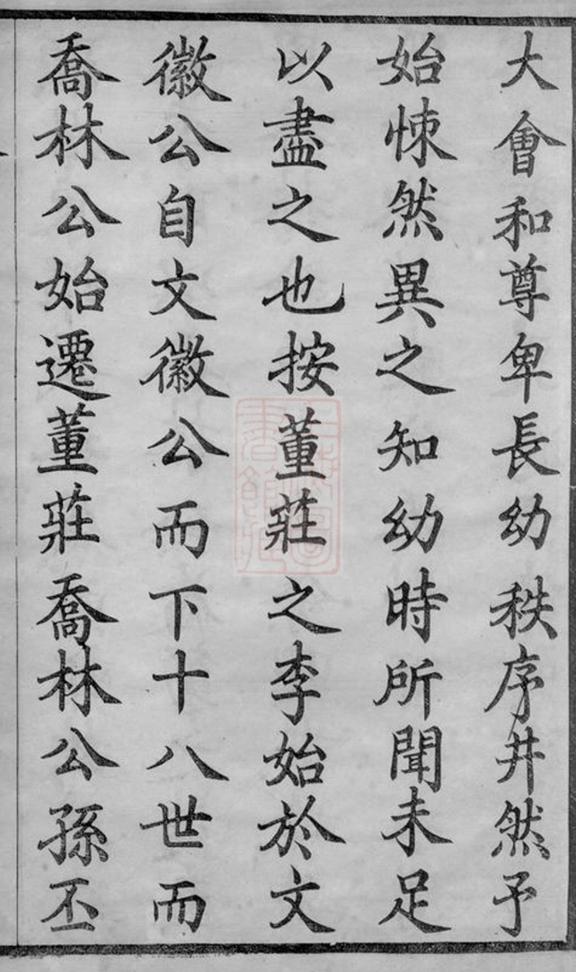 大會和尊卑長幼秩序井然予
始悚然異之知幼時所聞未足
以盡之也按董莊之李始於文
徽公自文徽公而下十八世而
喬林公始遷董莊喬林公孫丕